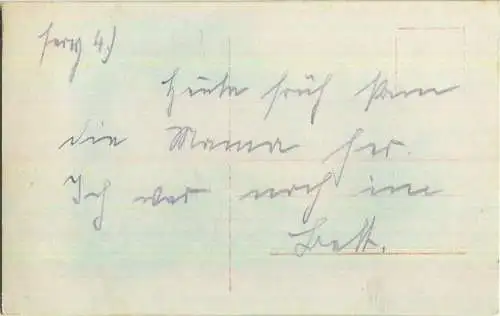 Heute früh kam
die Mama her.
Ich war noch im
Bett.